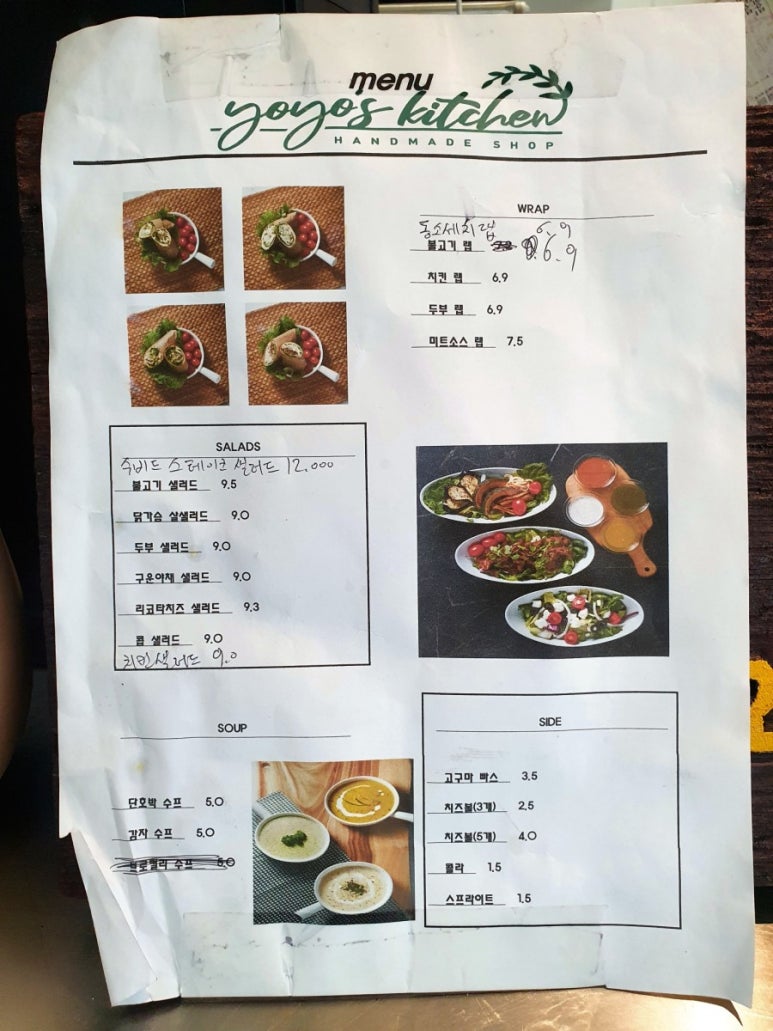 menu
yoyo's kitchen
HANDMADE SHOP
WRAP
동소세지 랩 6.9
불고기 랩 6.9
치킨 랩 6.9
두부 랩 6.9
미트소스 랩 7.5
SALADS
수비드 스테이크 샐러드 12.000
불고기 샐러드 9.5
닭가슴 살샐러드 9.0
두부 샐러드 9.0
구운야채 샐러드 9.0
리코타치즈 샐러드 9.3
콥 샐러드 9.0
치킨샐러드 9.0
SOUP
단호박 수프 5.0
감자 수프 5.0
브로컬리 수프 5.0
SIDE
고구마 빠스 3.5
치즈볼(3개) 2.5
치즈볼(5개) 4.0
콜라 1.5
스프라이트 1.5